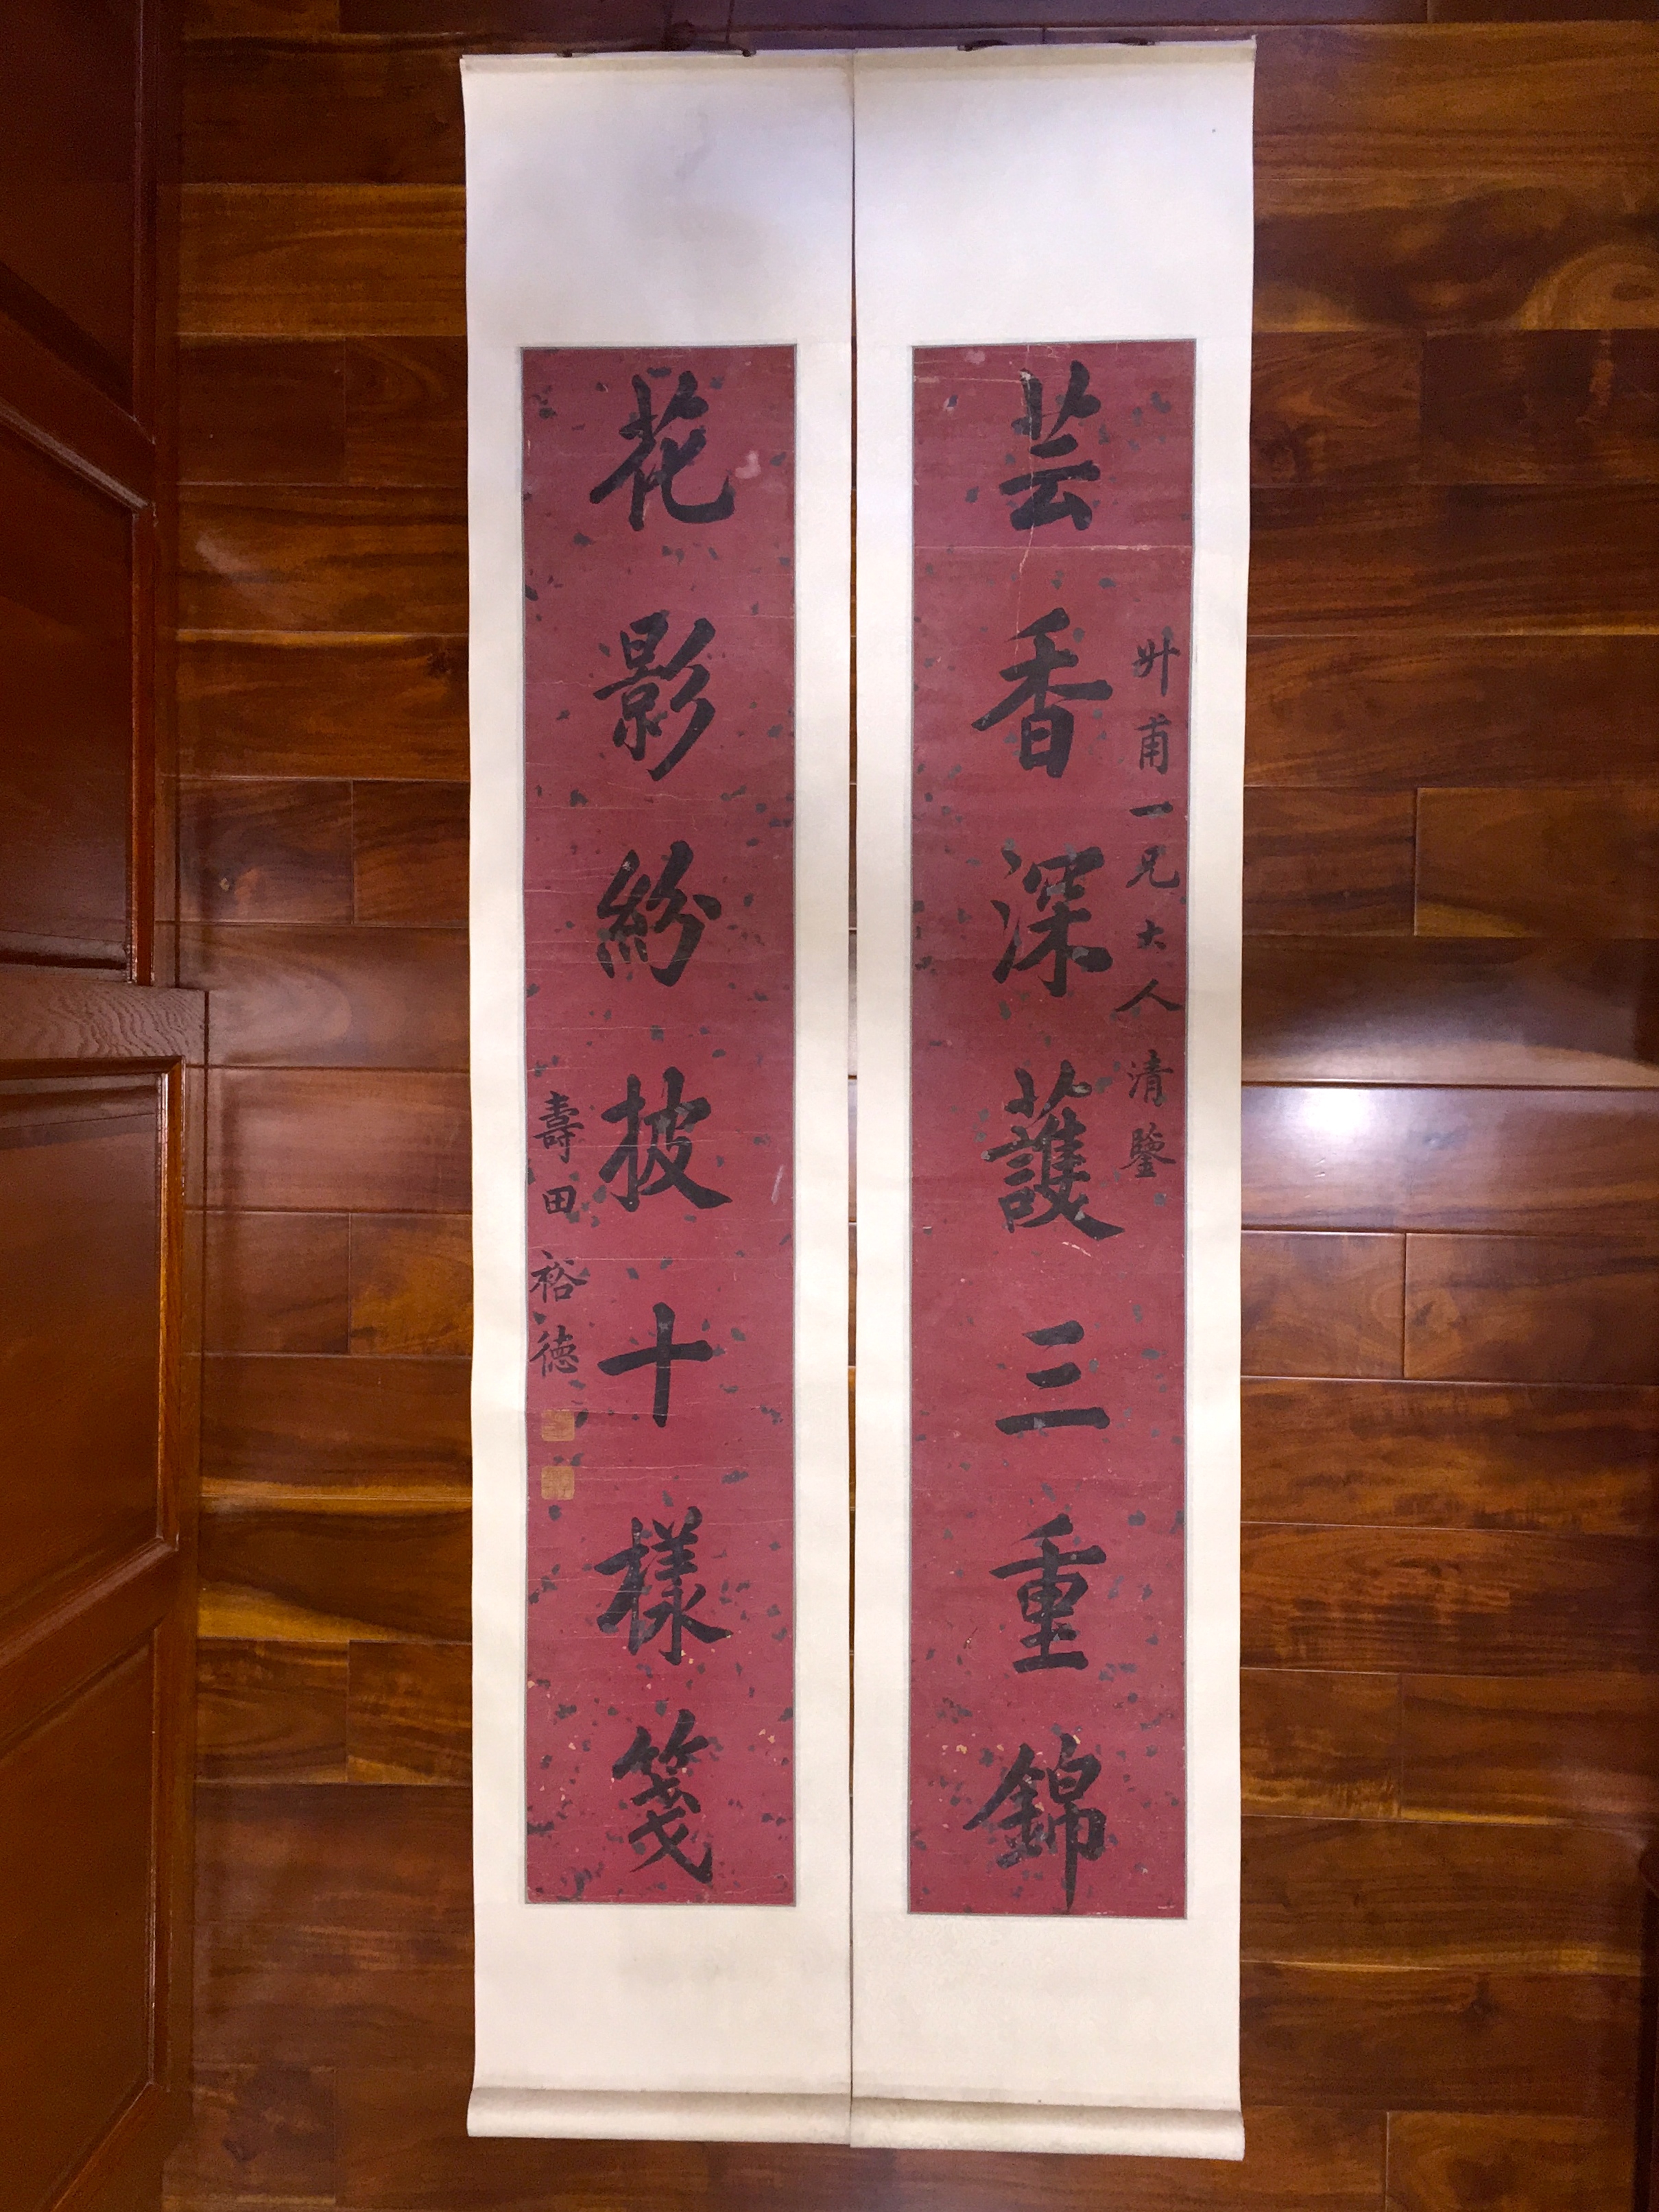 芸香深護三重錦
甫一兄大人清鑒
花影紛披十樣箋
壽田裕德